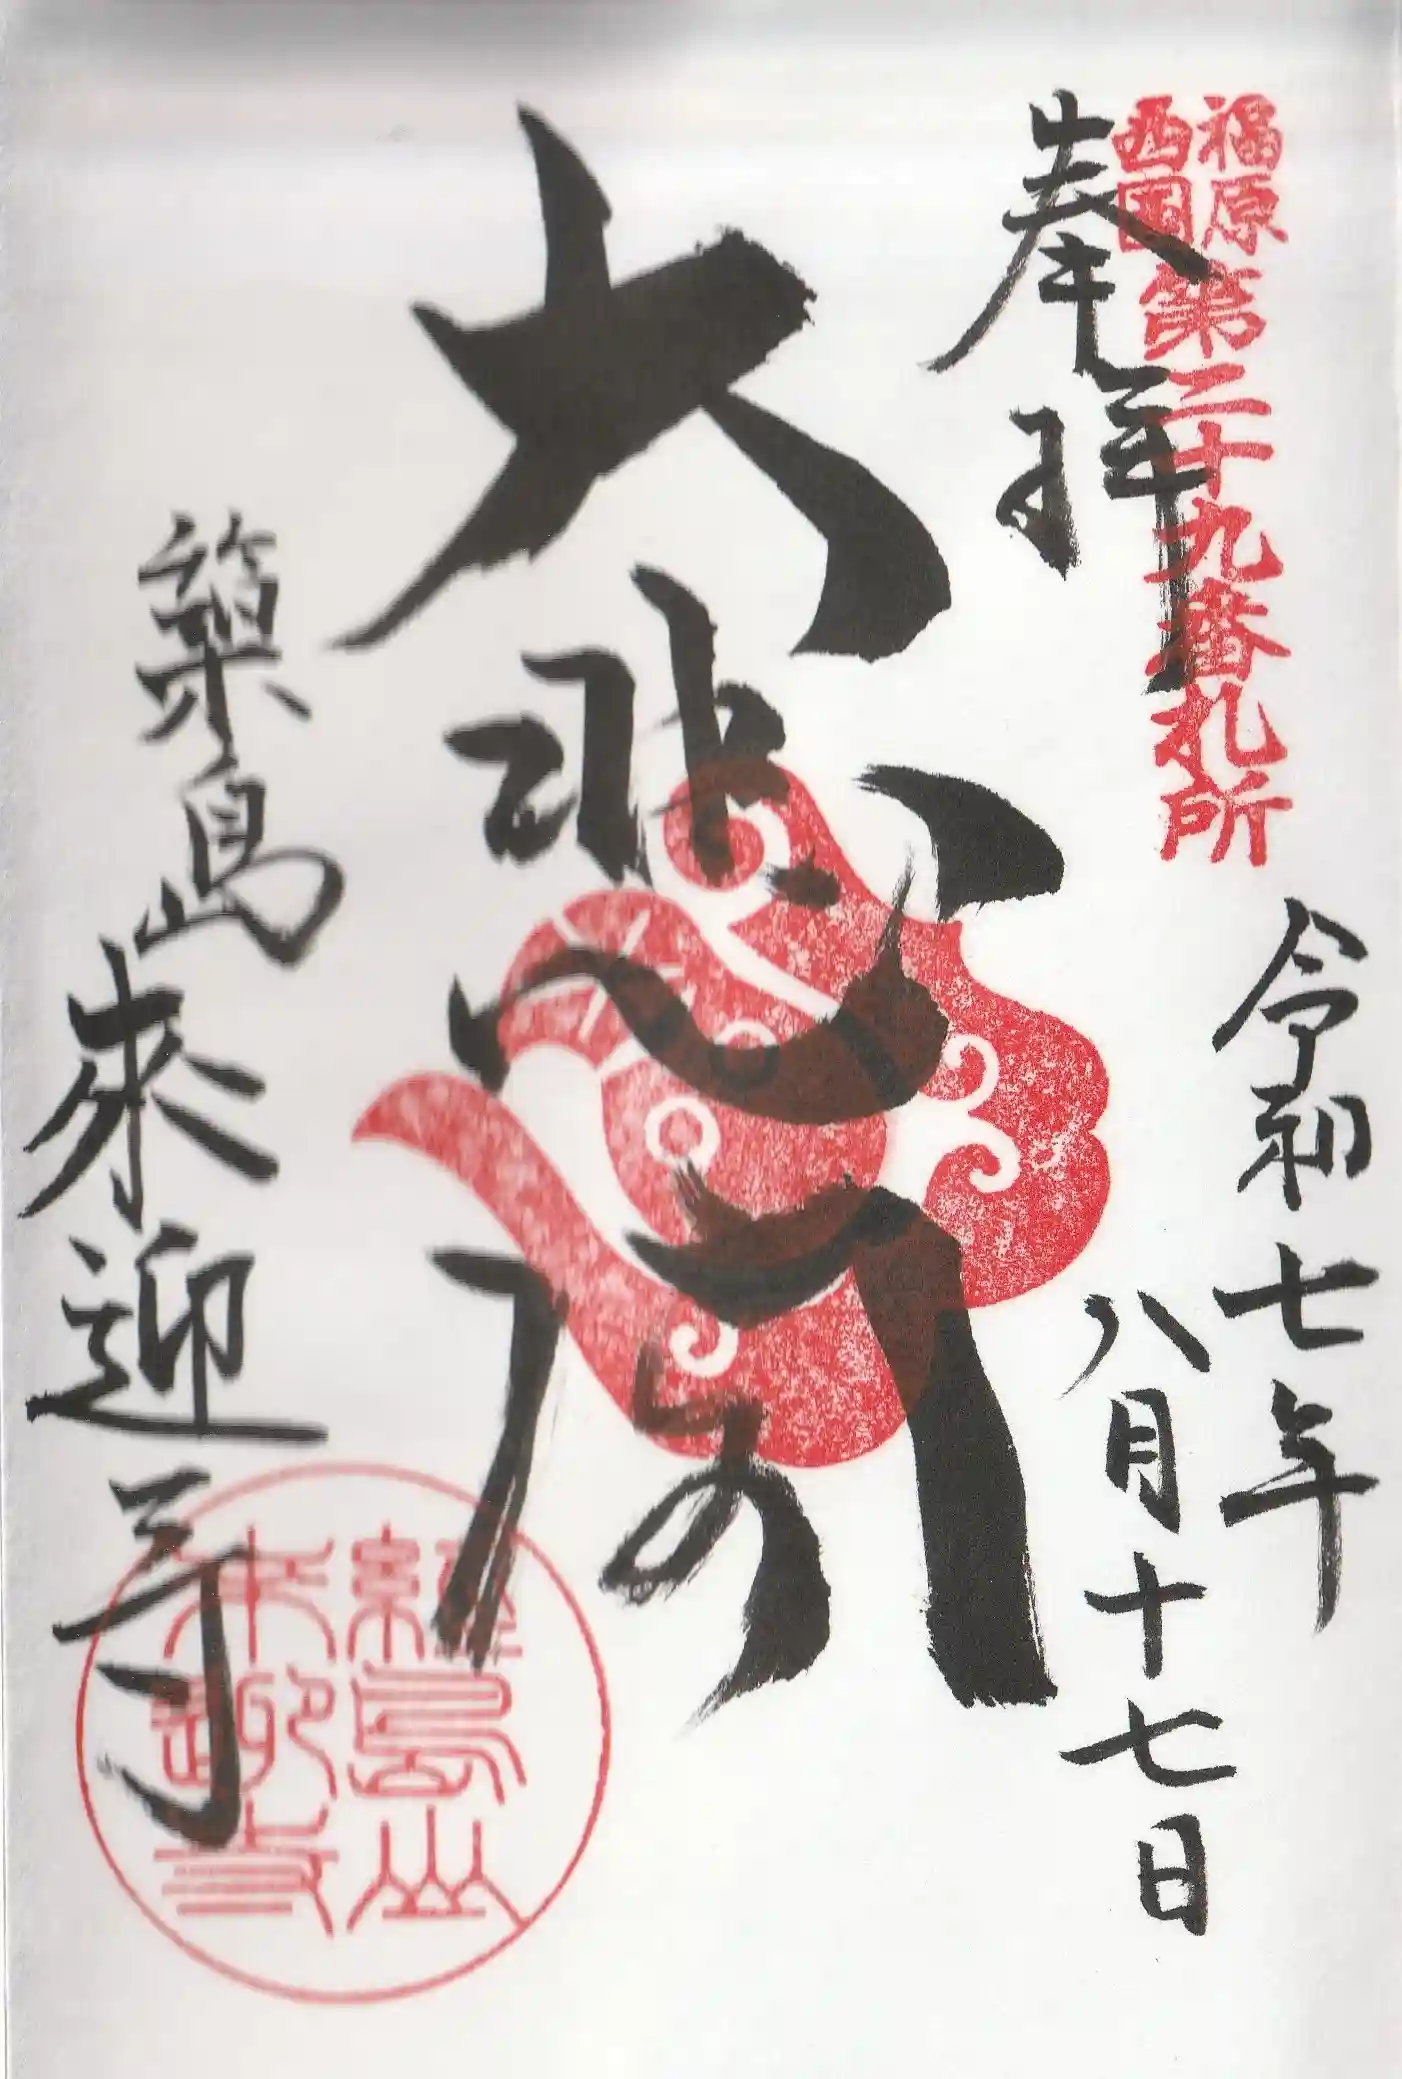 福原
西国
第二十九番札所
奉拝
令和七年
八月十七日
大悲閣
築島来迎寺
經島山
来迎寺